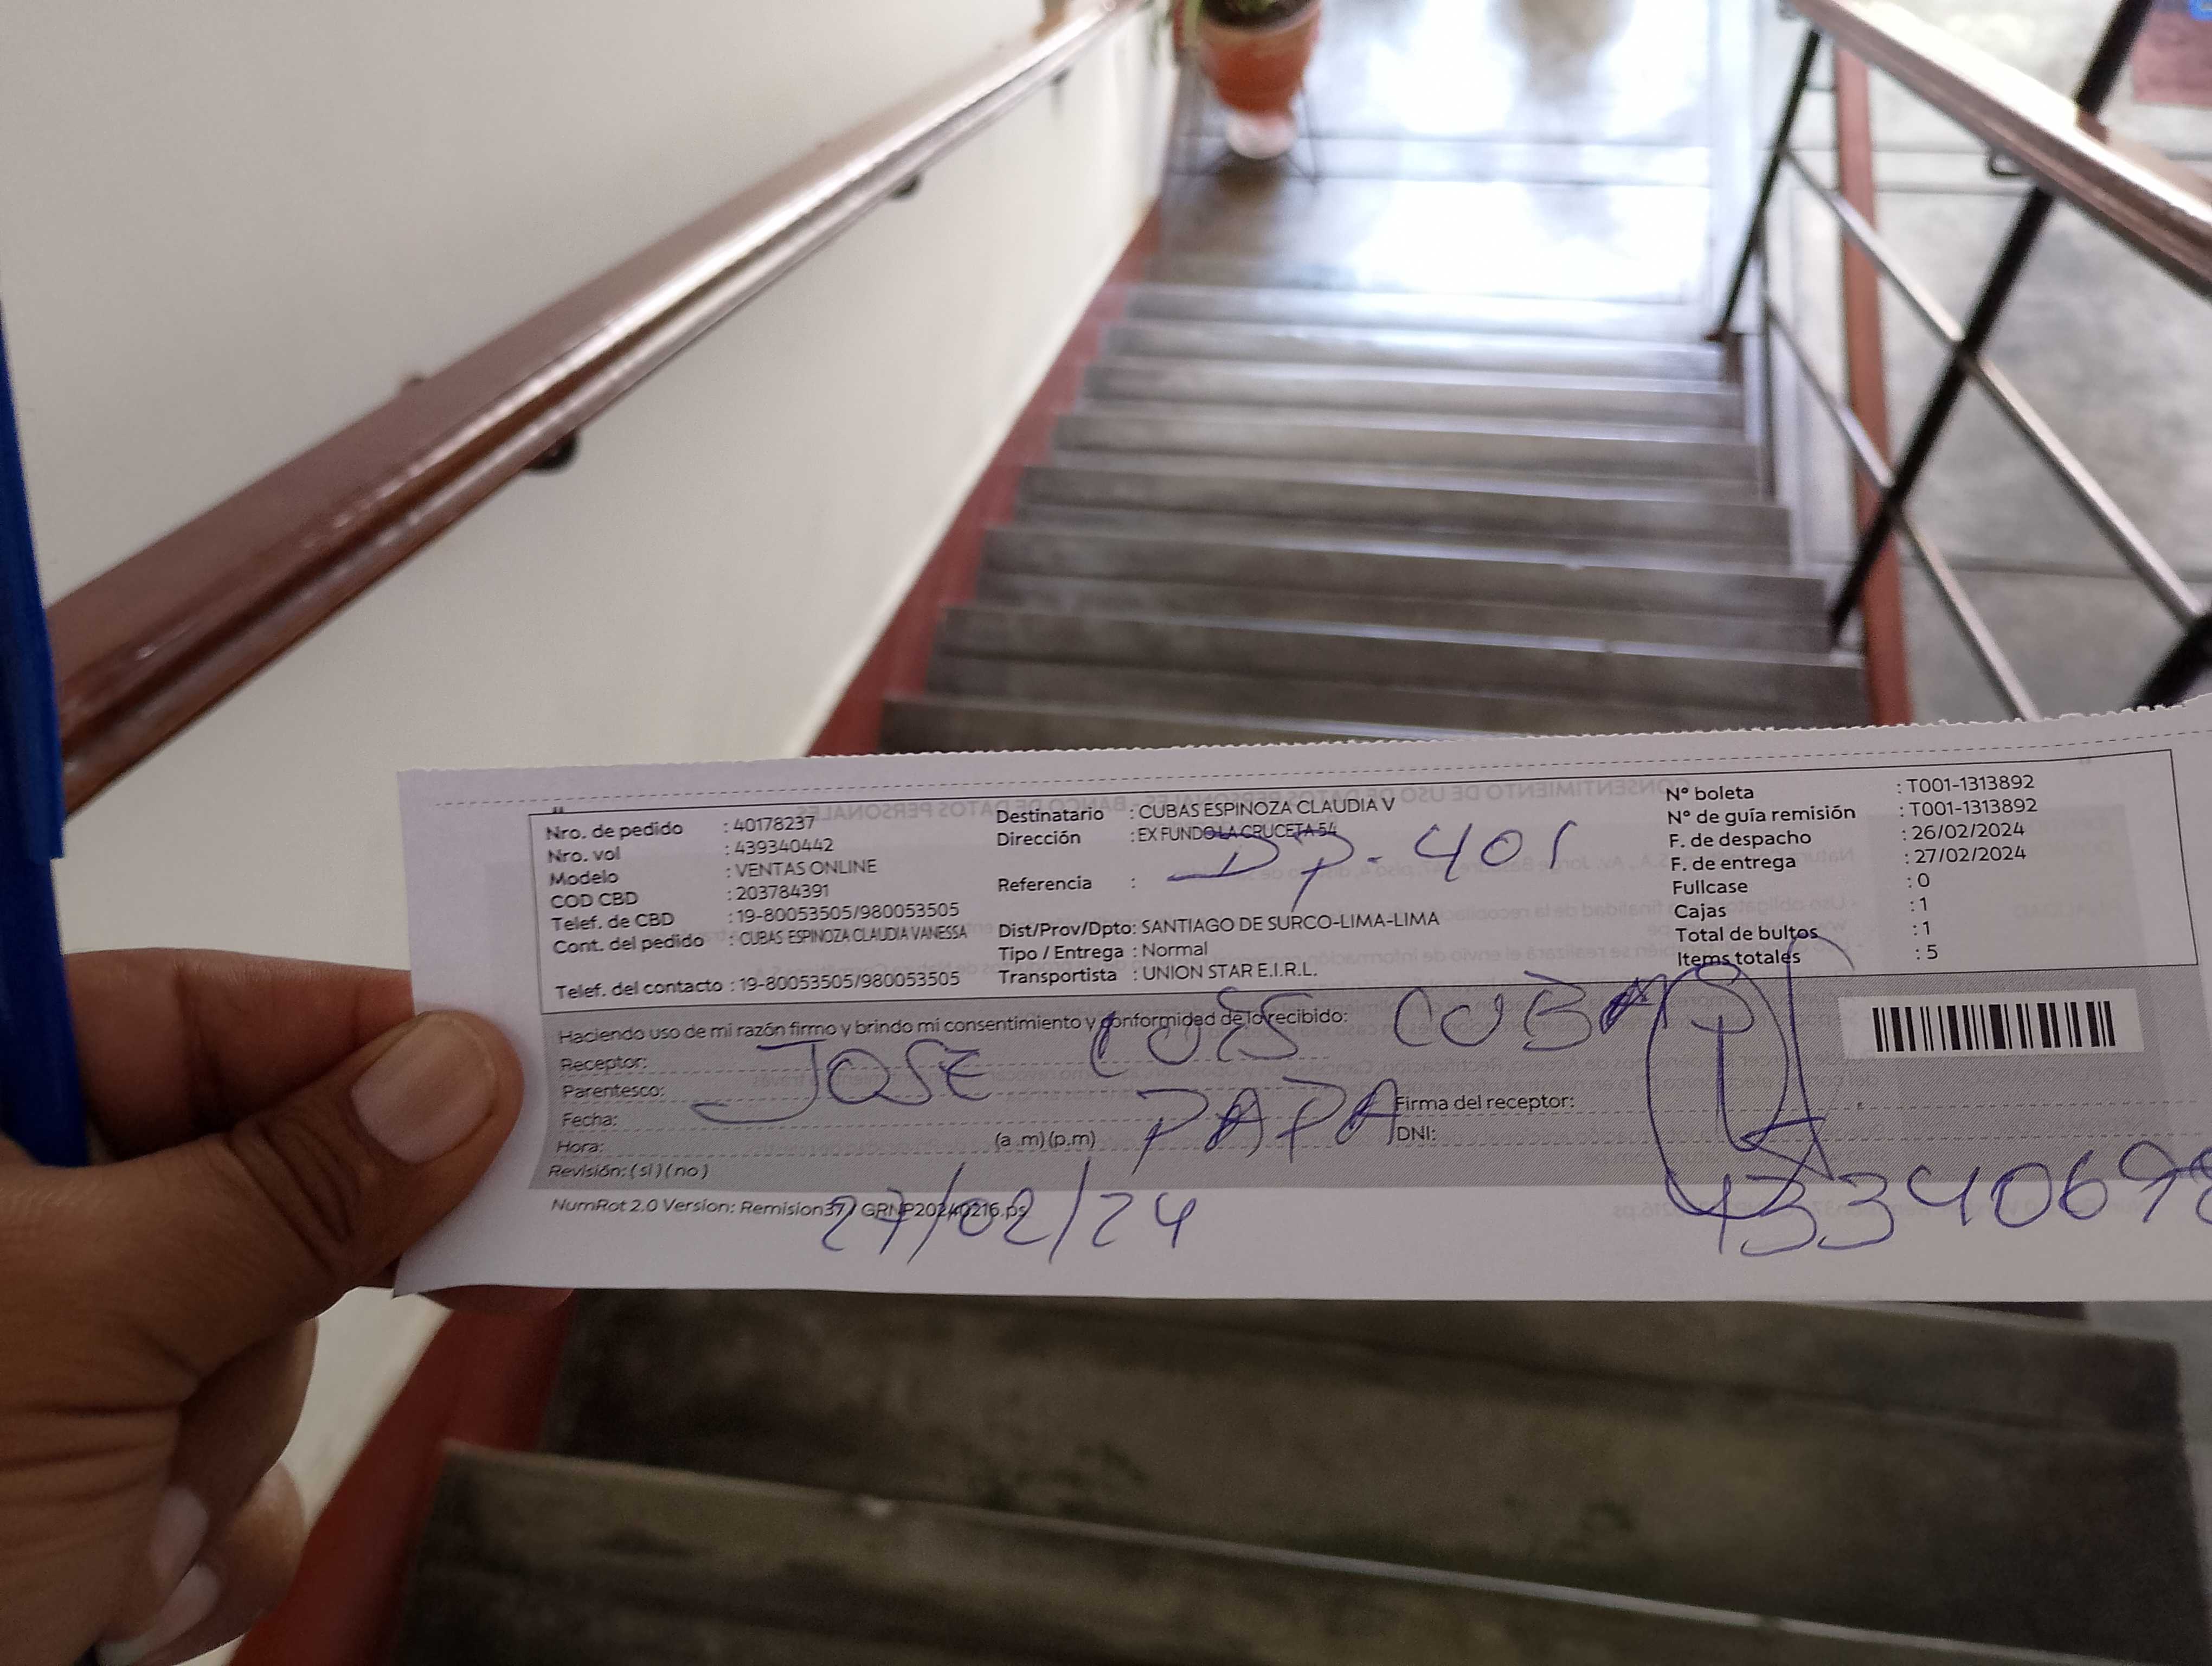 Nro. de pedido : 40178237
Nro. vol : 439340442
Modelo : VENTAS ONLINE
COD CBD : 203784391
Telef. de CBD : 19-80053505/980053505
Cont. del pedido : CUBAS ESPINOZA CLAUDIA VANESSA
Telef. del contacto : 19-80053505/980053505
Destinatario : CUBAS ESPINOZA CLAUDIA V
Dirección : EX FUNDO LA CRUCETA 54
DP. 401
Referencia :
Dist/Prov/Dpto: SANTIAGO DE SURCO-LIMA-LIMA
Tipo / Entrega : Normal
Transportista : UNION STAR E.I.R.L.
N° boleta : T001-1313892
N° de guía remisión : T001-1313892
F. de despacho : 26/02/2024
F. de entrega : 27/02/2024
Fullcase : 0
Cajas : 1
Total de bultos : 1
Items totales : 5
Haciendo uso de mi razón firmo y brindo mi consentimiento y conformidad de lo recibido:
Receptor: JOSE LUIS CUBAS
Parentesco: PAPA
Fecha:
Hora: (a .m) (p.m)
Revisión: ( si ) ( no )
Firma del receptor:
DNI:
43340698
NumRot 2.0 Version: Remision37 / GRNP20240216.ps
27/02/24